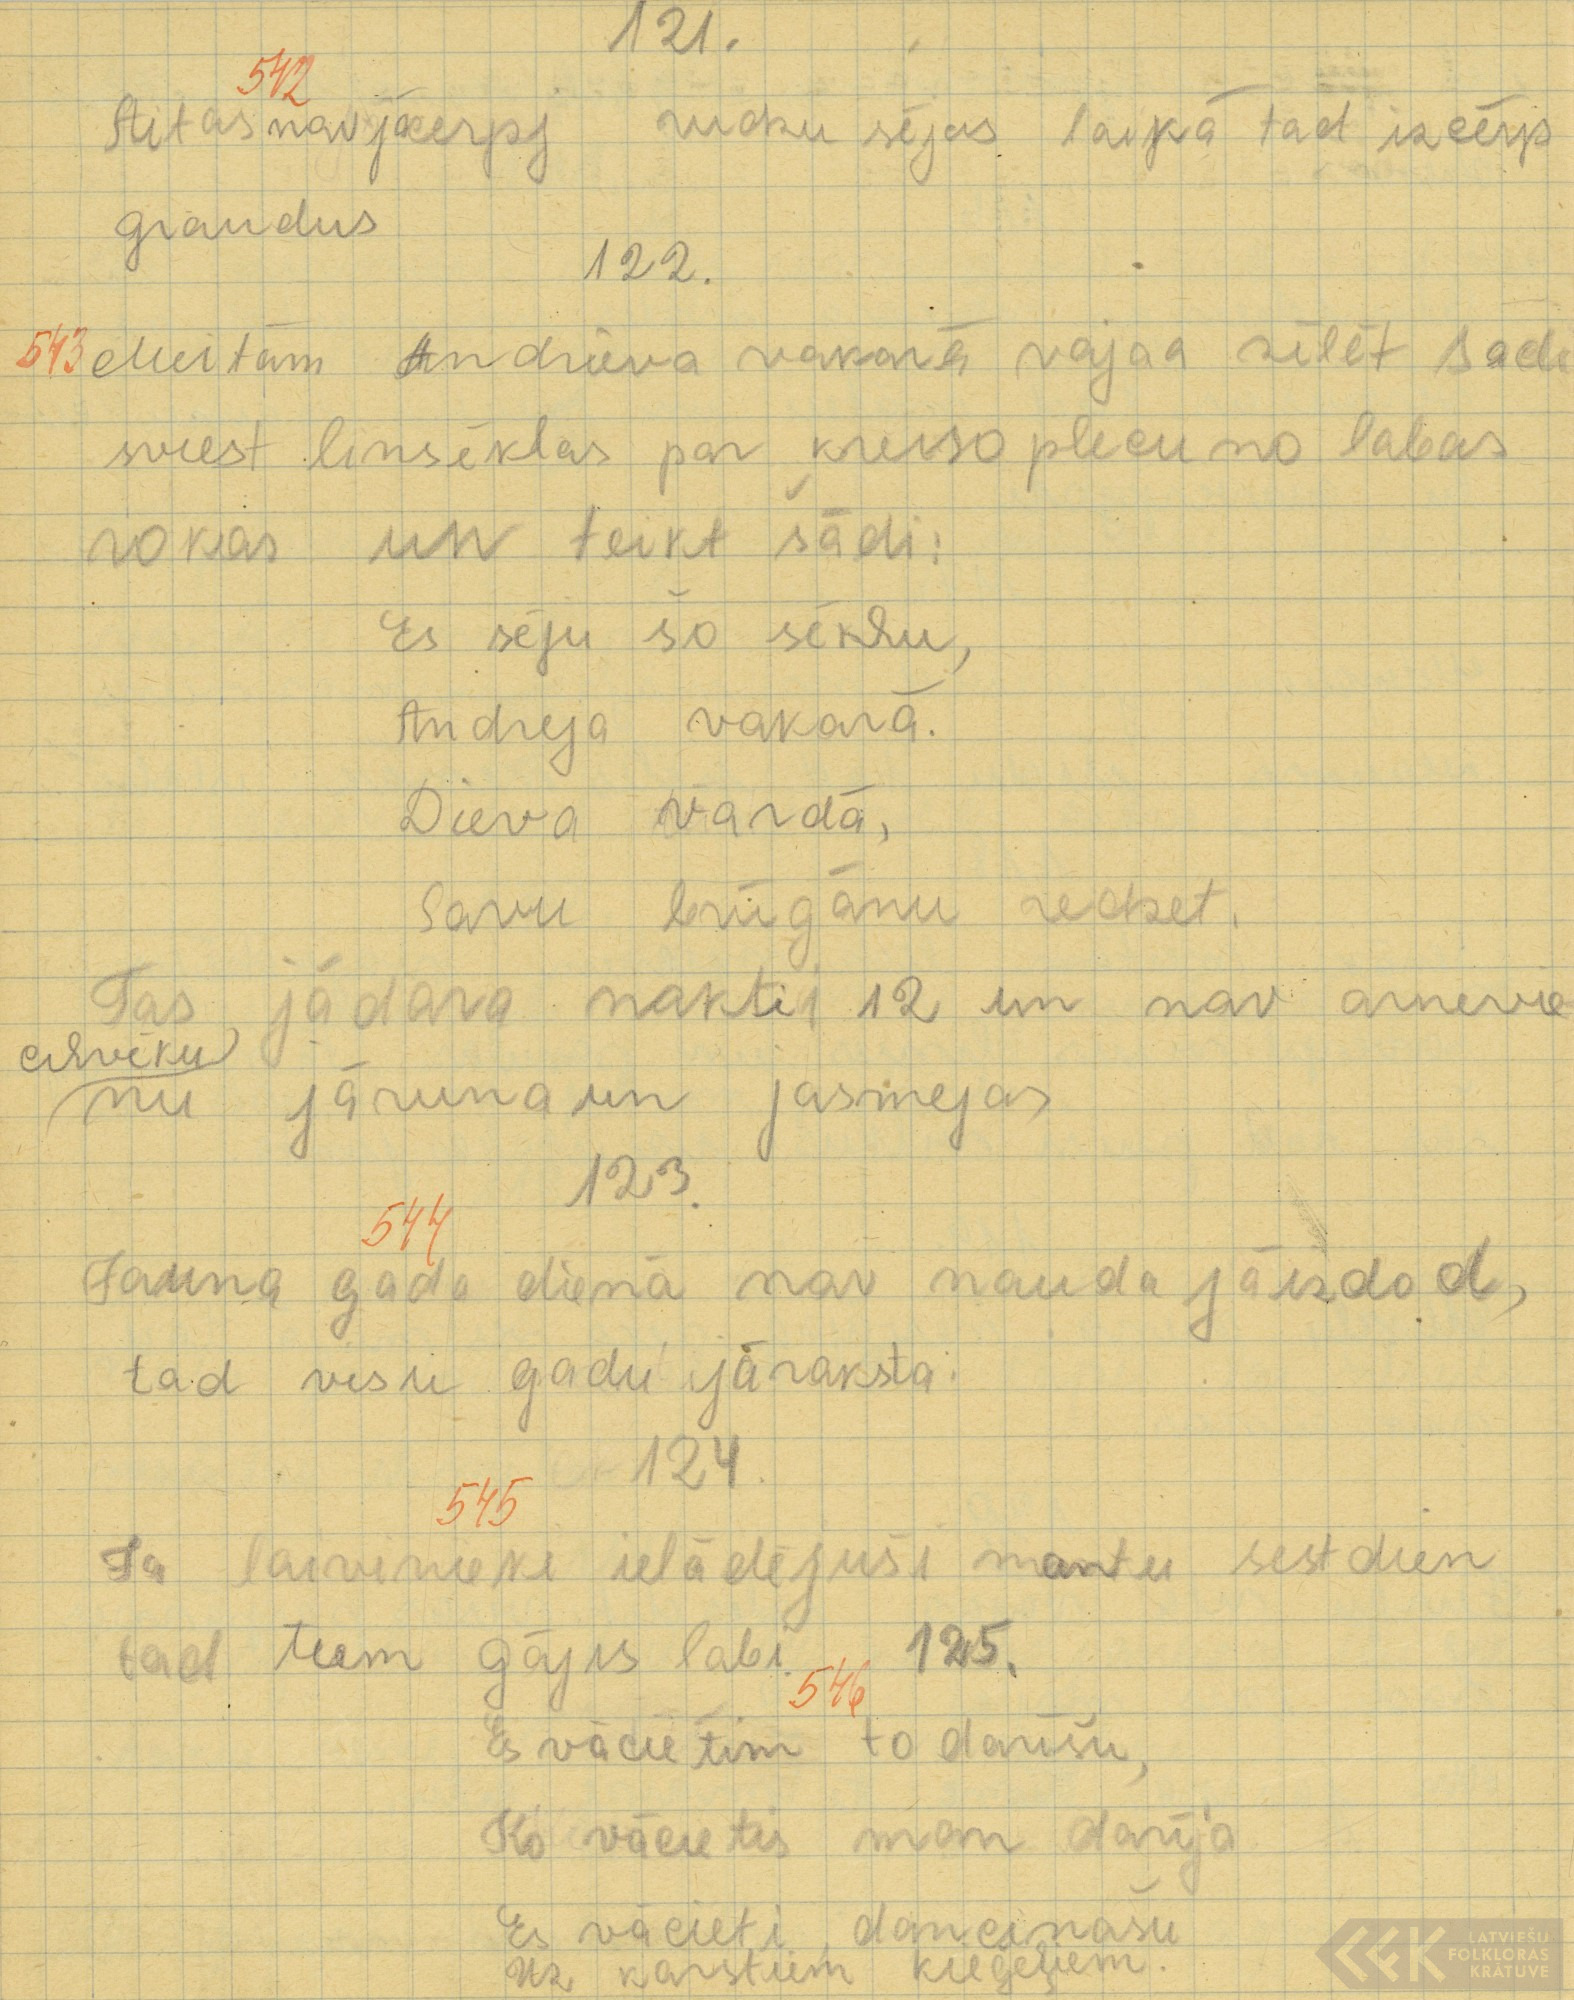 121.
542
Aitas nav jācerpj rudzu sējas laikā tad izcērp
graudus
122.
543 Meitām Andrieva vakarā vajaa zīlēt šade
sviest linsēklas par kreiso plecu no labas
rokas un teikt šādi:
Es sēju šo sēklu,
Andreja vakarā.
Dieva vārdā,
Savu brūgānu redzet.
Tas jādara naktī 12 un nav arnevie
cilvēku
nu jāruna un jasmejas
123.
544
Jauna gada dienā nav nauda jāizdod,
tad visu gadu jāraksta.
124.
545
Ja laivinieki ielādējuši mantu sestdien
tad tiem gājis labi. 125.
546
Es vācietim to darīšu,
Ko vācietis man darīja
Es vācieti dancināšu
Uz karstiem ķieģeļiem.
LATVIEŠU
FOLKLORAS
KRĀTUVE